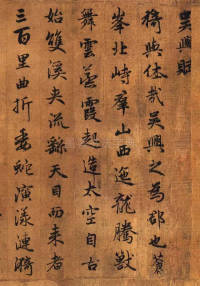 吳興賦
猗與休哉吳興之為郡也蒼
峯北峙群山西迤龍騰獸
舞雲蒸霞起造太空自古
始雙溪夾流繇天目而來者
三百里曲折委蛇演漾漣漪